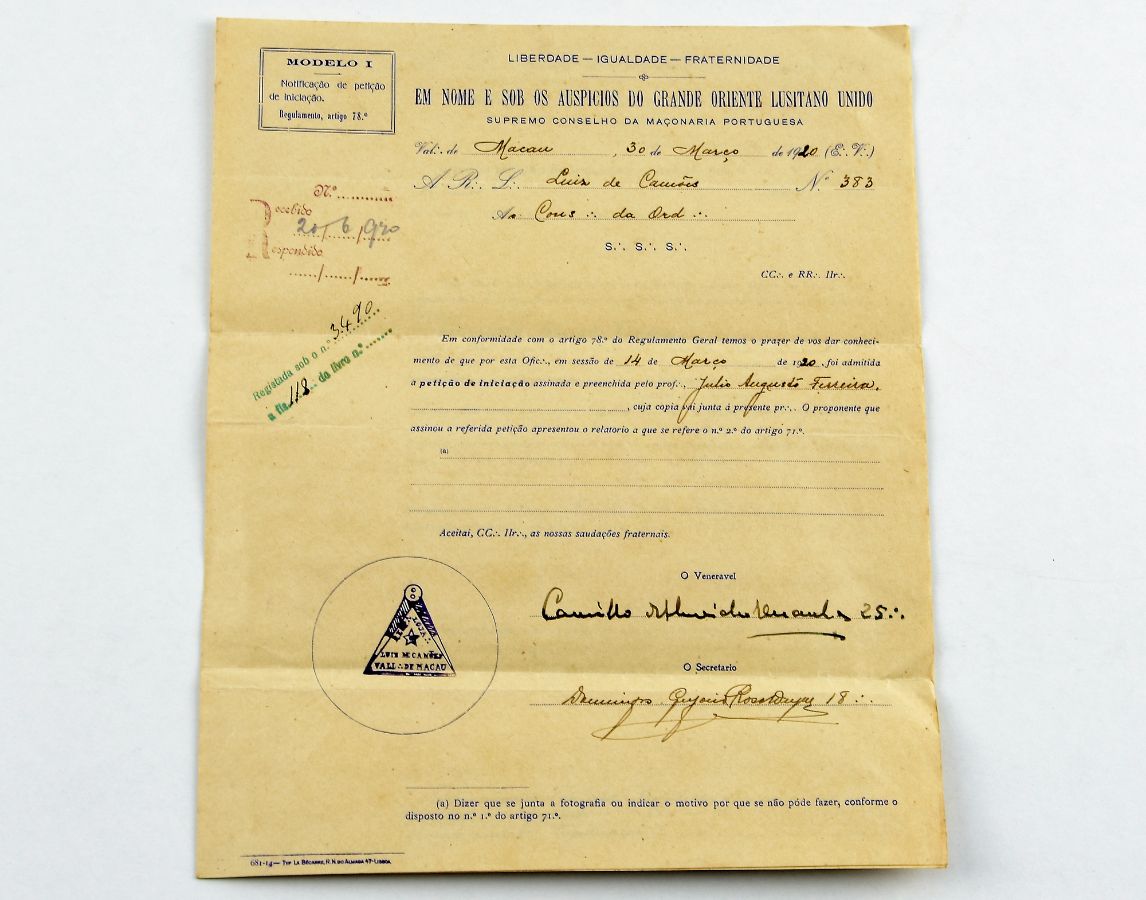 MODELO I
Notificação de petição
de iniciação.
Regulamento, artigo 78.º
LIBERDADE — IGUALDADE — FRATERNIDADE
EM NOME E SOB OS AUSPICIOS DO GRANDE ORIENTE LUSITANO UNIDO
SUPREMO CONSELHO DA MAÇONARIA PORTUGUESA
Val∴ de Macau, 30 de Março de 1920 (E∴ V∴)
A R∴ L∴ Luiz de Camões N.º 383
Ao Cons∴ da Ord∴
S∴ S∴ S∴
CC∴ e RR∴ IIr∴
N.º
Recebido
20/6/920
Respondido
Registada sob o n.º 3490
a fls. 118 do livro n.º
Em conformidade com o artigo 78.º do Regulamento Geral temos o prazer de vos dar conheci-
mento de que por esta Ofic∴, em sessão de 14 de Março de 1920, foi admitida
a petição de iniciação assinada e preenchida pelo prof∴, Julio Augusto Ferreira,
, cuja copia vai junta á presente pr∴. O proponente que
assinou a referida petição apresentou o relatorio a que se refere o n.º 2.º do artigo 71.º.
(a)
Aceitai, CC∴ IIr∴, as nossas saudações fraternais.
O Veneravel
Camillo 25∴
LOJA
LUIS DE CAMÕES
VALL∴ DE MACAU
O Secretario
Domingos 18∴
(a) Dizer que se junta a fotografia ou indicar o motivo por que se não póde fazer, conforme o
disposto no n.º 1.º do artigo 71.º.
681-19 — TYP. LA BÉCARRE, R. N. DO ALMADA 47-LISBOA